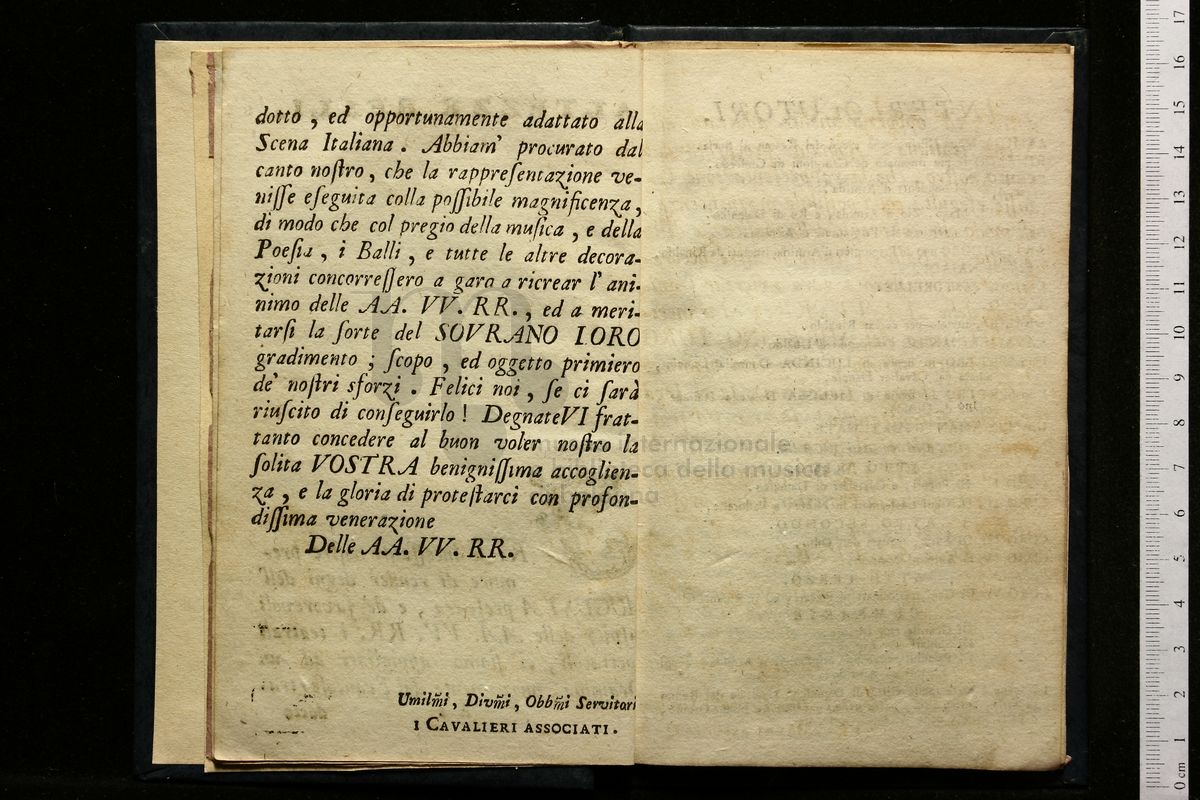 dotto , ed opportunamente adattato alla
Scena Italiana . Abbiam' procurato dal
canto noſtro , che la rappreſentazione ve-
niſſe eſeguita colla poſſibile magnificenza ,
di modo che col pregio della muſica , e della
Poeſia , i Balli , e tutte le altre decora-
zioni concorreſſero a gara a ricrear l' ani-
nimo delle AA. VV. RR. , ed a meri-
tarſi la ſorte del SOVRANO LORO
gradimento ; ſcopo , ed oggetto primiero
de' noſtri sforzi . Felici noi , ſe ci ſarà
riuſcito di conſeguirlo ! DegnateVI frat-
tanto concedere al buon voler noſtro la
ſolita VOSTRA benigniſſima accoglien-
za , e la gloria di proteſtarci con profon-
diſſima venerazione
Delle AA. VV. RR.
Umilm̃i , Divm̃i , Obbm̃i Servitori
I CAVALIERI ASSOCIATI .
museo internazionale
e biblioteca della musica
0 cm 1 2 3 4 5 6 7 8 9 10 11 12 13 14 15 16 17